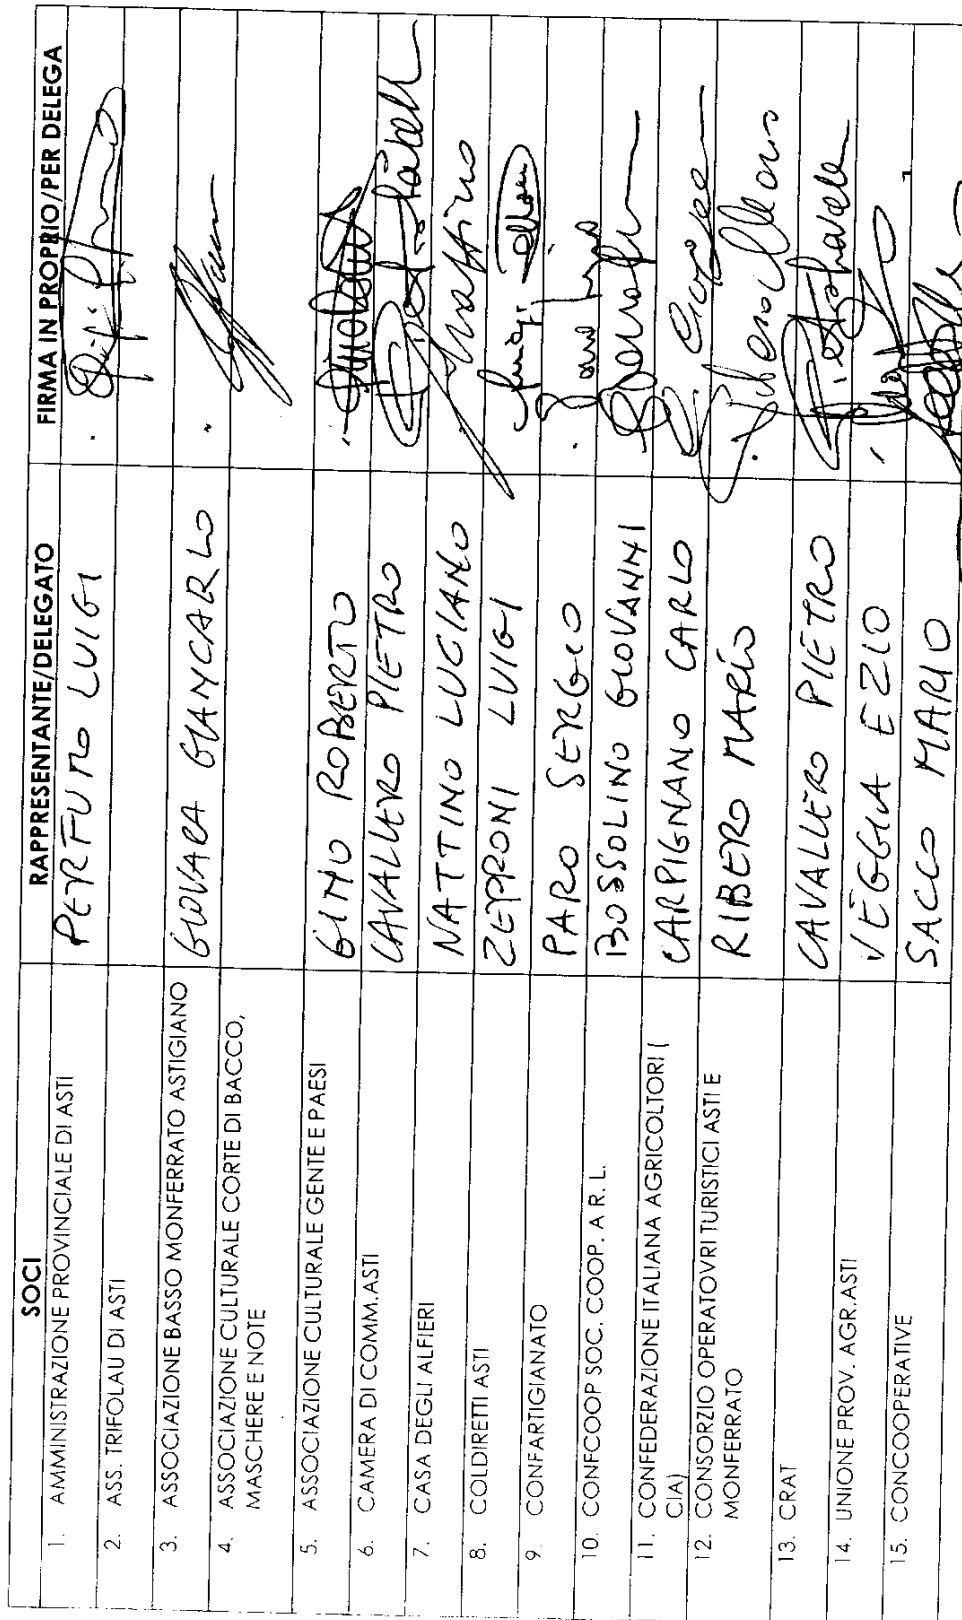 SOCI RAPPRESENTANTE/DELEGATO FIRMA IN PROPRIO/PER DELEGA
1. AMMINISTRAZIONE PROVINCIALE DI ASTI PERFUMO LUIGI
2. ASS. TRIFOLAU DI ASTI
3. ASSOCIAZIONE BASSO MONFERRATO ASTIGIANO GIOVARA GIANCARLO
4. ASSOCIAZIONE CULTURALE CORTE DI BACCO,
MASCHERE E NOTE
5. ASSOCIAZIONE CULTURALE GENTE E PAESI GIMO ROBERTO
6. CAMERA DI COMM.ASTI CAVALLERO PIETRO
7. CASA DEGLI ALFIERI NATTINO LUCIANO Nattino
8. COLDIRETTI ASTI ZEPPRONI LUIGI Luigi
9. CONFARTIGIANATO PARO SERGIO
10. CONFCOOP SOC. COOP. A R. L. BOSSOLINO GIOVANNI
11. CONFEDERAZIONE ITALIANA AGRICOLTORI (
CIA) CARPIGNANO CARLO
12. CONSORZIO OPERATOVRI TURISTICI ASTI E
MONFERRATO RIBERO MARIO
13. CRAT CAVALLERO PIETRO
14. UNIONE PROV. AGR.ASTI VEGGIA EZIO
15. CONCOOPERATIVE SACCO MARIO